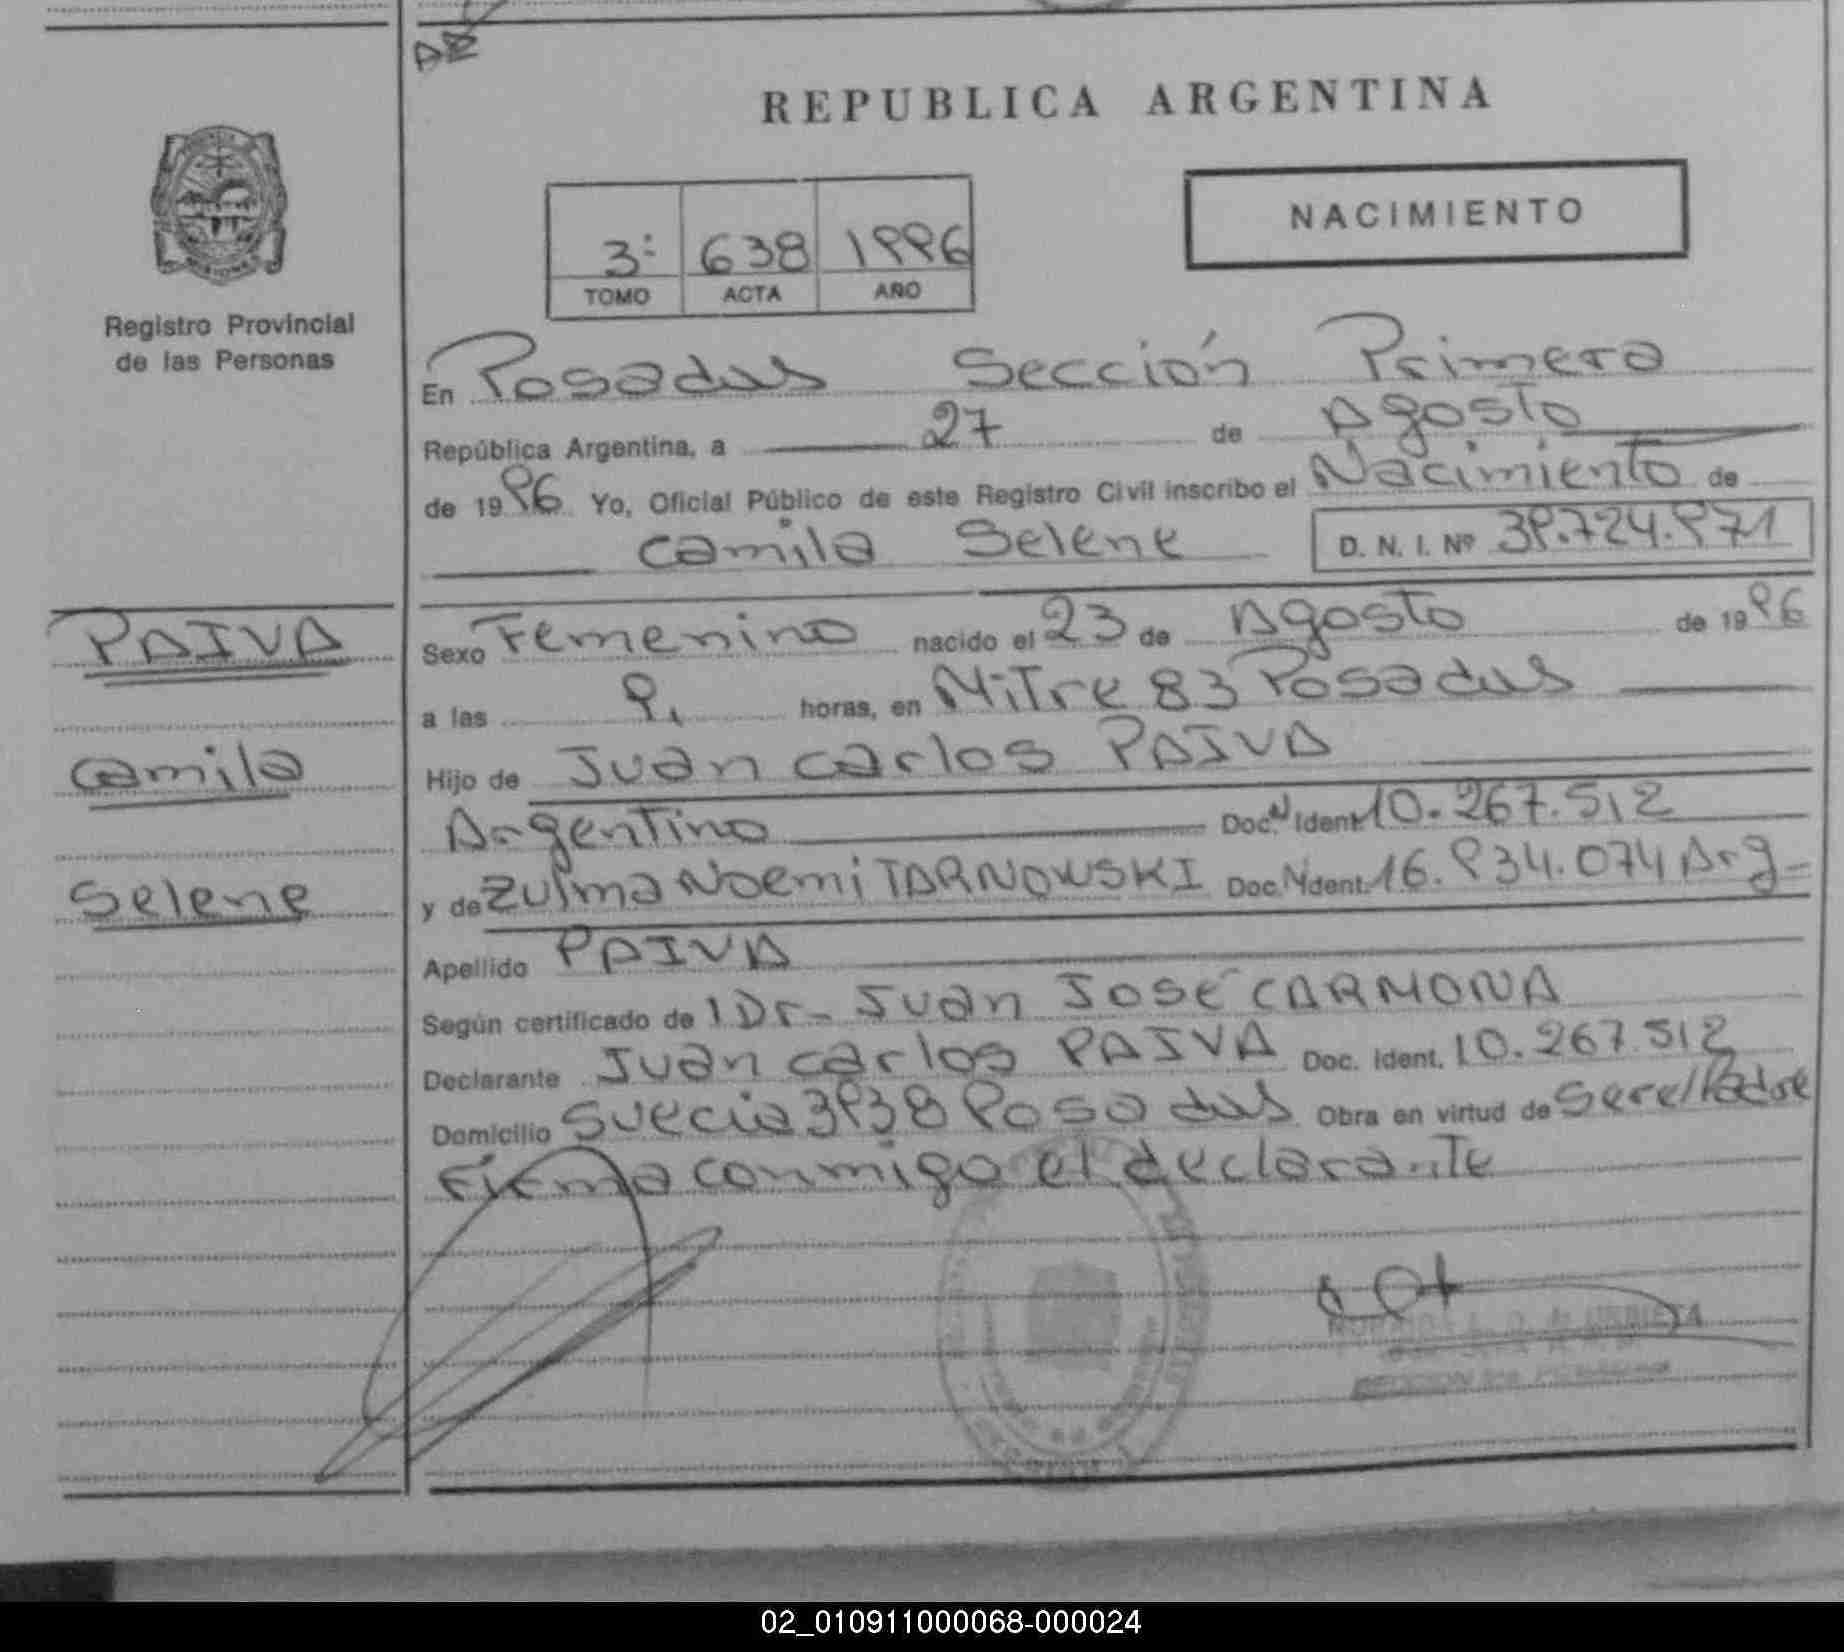 REPUBLICA ARGENTINA
NACIMIENTO
3º 638 1996
TOMO ACTA AÑO
MISIONES
Registro Provincial
de las Personas
En Posadas Sección Primera
República Argentina, a 27 de Agosto
de 1996 Yo, Oficial Público de este Registro Civil inscribo el Nacimiento de
Camila Selene D. N. I. Nº 39.724.971
PAIVA
Camila
Selene
Sexo Femenino nacido el 23 de Agosto de 1996
a las 9, horas, en Mitre 83 Posadas
Hijo de Juan Carlos PAIVA
Argentino Doc. N Ident. 10.267.512
y de Zulma Noemi TARNOWSKI Doc. N Ident. 16.934.074 Arg-
Apellido PAIVA
Según certificado de l Dr- Juan José CARMONA
Declarante Juan Carlos PAIVA Doc. Ident. 10.267.512
Domicilio Suecia 3938 Posadas Obra en virtud de Ser el Padre
Firma conmigo el declarante
URRIETA
SECCION
02_010911000068-000024